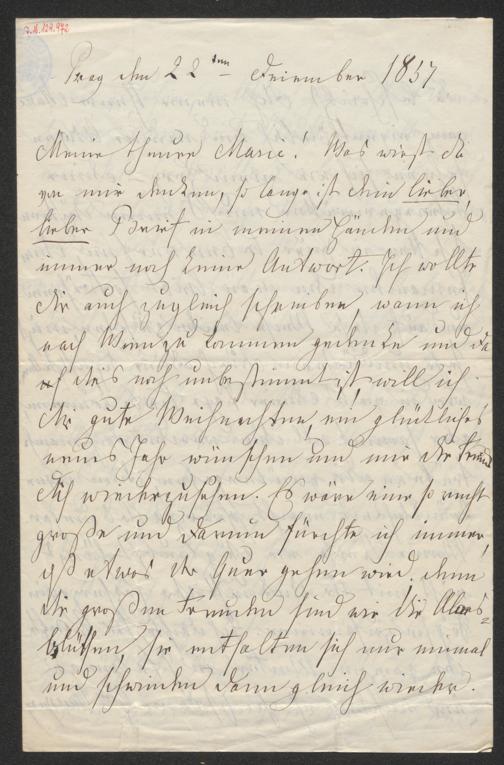 J. N. 129.972
Prag den 22ten Dezember 1857
Meine theure Marie! Was wirst du
von mir denken, so lange ist dein lieber,
lieber Brief in meinen Händen und
immer noch keine Antwort. Ich wollte
dir auch zugleich schreiben, wann ich
nach Wien zu kommen gedenke und da
dies noch unbestimmt ist, will ich
dir gute Weihnachten, ein glückliches
neues Jahr wünschen und mir die Freude
dich wiederzusehen. Es wäre eine so recht
große und darum fürchte ich immer,
daß etwas der Quer gehen wird, denn
die großen Freuden sind wie die Aloes-
blüthen, sie entfalten sich nur einmal
und schwinden dann gleich wieder.